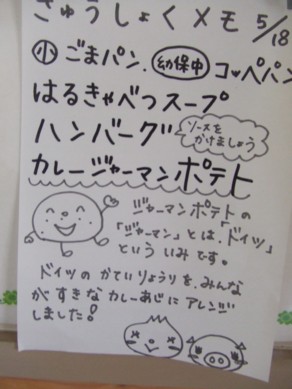 きゅうしょくメモ 5/18
小 ごまパン. 幼保中 コッペパン
はるきゃべつスープ
ハンバーグ ソースを
かけましょう
カレージャーマンポテト
ジャーマンポテトの
「ジャーマン」とは、「ドイツ」
という いみ です。
ドイツ の かていりょうり を、みんな
が すきな カレーあじに アレンジ
しました!